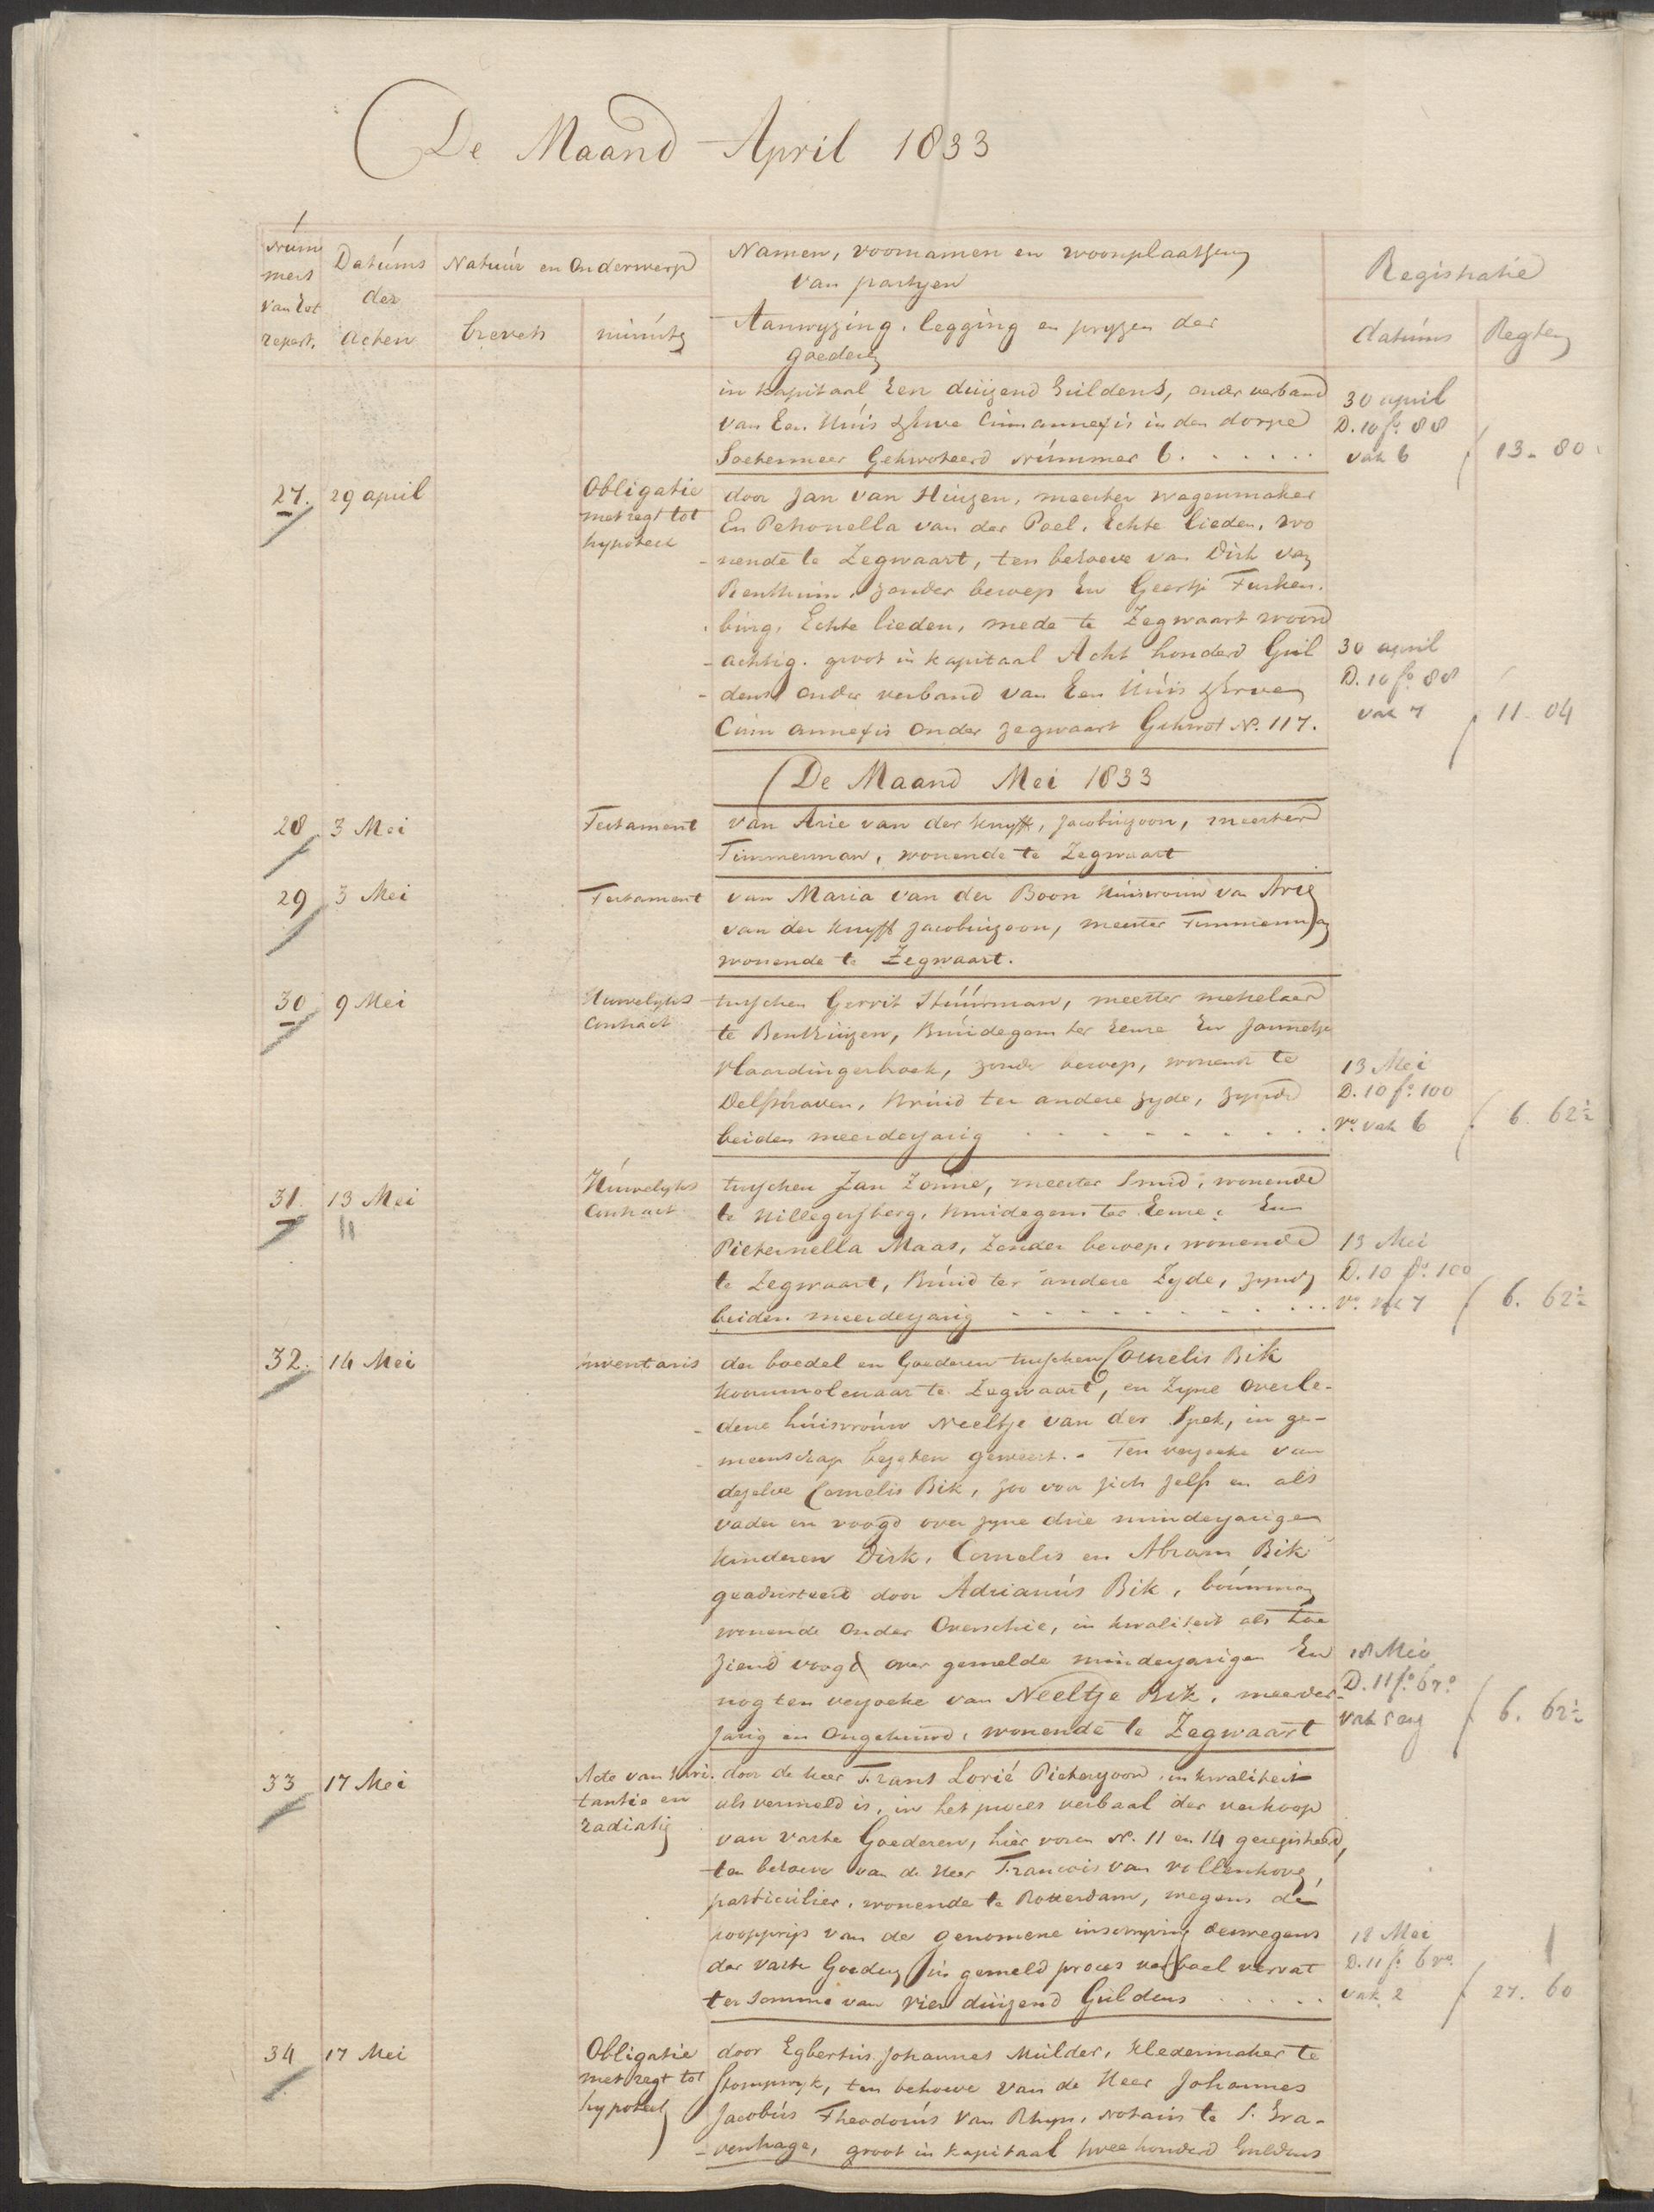 De Maand April 1833
Num
mers
van het
repert.
Datums
der
Acten
Natuur en Onderwerp
brevets
minuts
Namen, voornamen en woonplaatsen
van partyen
Aanwyzing, legging en pryzen der
goederen
Registratie
datums
Regten
in kapitaal Een duizend Guldens, onder verband
van Een Huis & Erve Cum annexis in den dorpe
Soetermeer Gekwoteerd Nummer 6 . . . . . .
30 april
D. 10 fo. 88
vak 6
13 - 80
27.
29 april
Obligatie
met regt tot
hypotheek
door Jan van Huizen, meester wagenmaker
En Petronella van der Poel, Echte lieden, wo
nende te Zegwaart, ten behoeve van Dirk van
Benthum, zonder beroep En Geertje Turken.
burg, Echte lieden, mede te Zegwaart woon
achtig. groot in kapitaal Acht honderd Gul
dens onder verband van Een Huis & Erve
Cum annexis onder Zegwaart Gekwot No. 117.
30 april
D. 10 fo. 88
vak 7
11 - 04
De Maand Mei 1833
28
3 Mei
Testament
van Arie van der Knyff, Jacobuszoon, meester
Timmerman, wonende te Zegwaart
29
3 Mei
Testament
van Maria van der Boon Huisvrouw van Arie
van der Knyff Jacobuszoon, meester Timmerman
wonende te Zegwaart.
30
9 Mei
Huwelyks
Contract
tusschen Gerrit Stuurman, meester metselaar
te Benthuizen, Bruidegom ter Eenre En Jannetje
Vlaardingerbroek, zonder beroep, wonende te
Delfshaven, Bruid ter andere zyde, zynde
beiden meerderjarig
13 Mei
D. 10 fo. 100
vo. vak 6
6. 62½
31.
13 Mei
Huwelyks
Contract
tusschen Jan Zonne, meester Smid, wonende
te Hillegersberg, Bruidegom ter Eenre; En
Pieternella Maas, Zonder beroep, wonende
te Zegwaart, Bruid ter andere Zyde, zynde
beiden meerderjarig
13 Mei
D. 10 fo. 100
vo. vak 7
6. 62½
32.
14 Mei
inventaris
der boedel en Goederen tusschen Cornelis Bik
Koornmolenaar te Zegwaart, en Zyne Overle-
dene huisvrouw Neeltje van der Spek, in ge-
meenschap bezeten geweest. - Ten verzoeke van
dezelve Cornelis Bik, zoo voor zich zelf en als
vader en voogd over zyne drie minderjarigen
kinderen Dirk, Cornelis en Abram Bik
geadsisteerd door Adrianus Bik, bouwman
wonende onder Overschie, in kwaliteit als toe
ziend voogd over gemelde minderjarigen En
nog ten verzoeke van Neeltje Bik, meerder-
jarig en Ongehuwd, wonende te Zegwaart
18 Mei
D. 11 fo. 6 vo.
6. 62½
33
17 Mei
Acte van kwi.
tantie en
radiatie
door de Heer Frans Lorié Pieterzoon, in kwaliteit
als vermeld is, in het proces verbaal der verkoop
van vaste Goederen, hier voren No. 11 en 14 geregistreerd,
ten behoeve van de Heer Francois van Vollenhoven,
particulier, wonende te Rotterdam, wegens de
koopprijs van de genomene inschryving deswegens
der vaste Goederen in gemeld proces verbael vervat
ter somme van vier duizend Guldens . . . . .
18 Mei
D. 11 fo. 6 vo.
vak 2
27. 60
34
17 Mei
Obligatie
met regt tot
hypotheek
door Egbertus Johannes Mulder, Kledermaker te
Stompwyk, ten behoeve van de Heer Johannes
Jacobus Theodorus van Rhyn, Notaris te S. Gra-
venhage, groot in kapitaal twee honderd Guldens